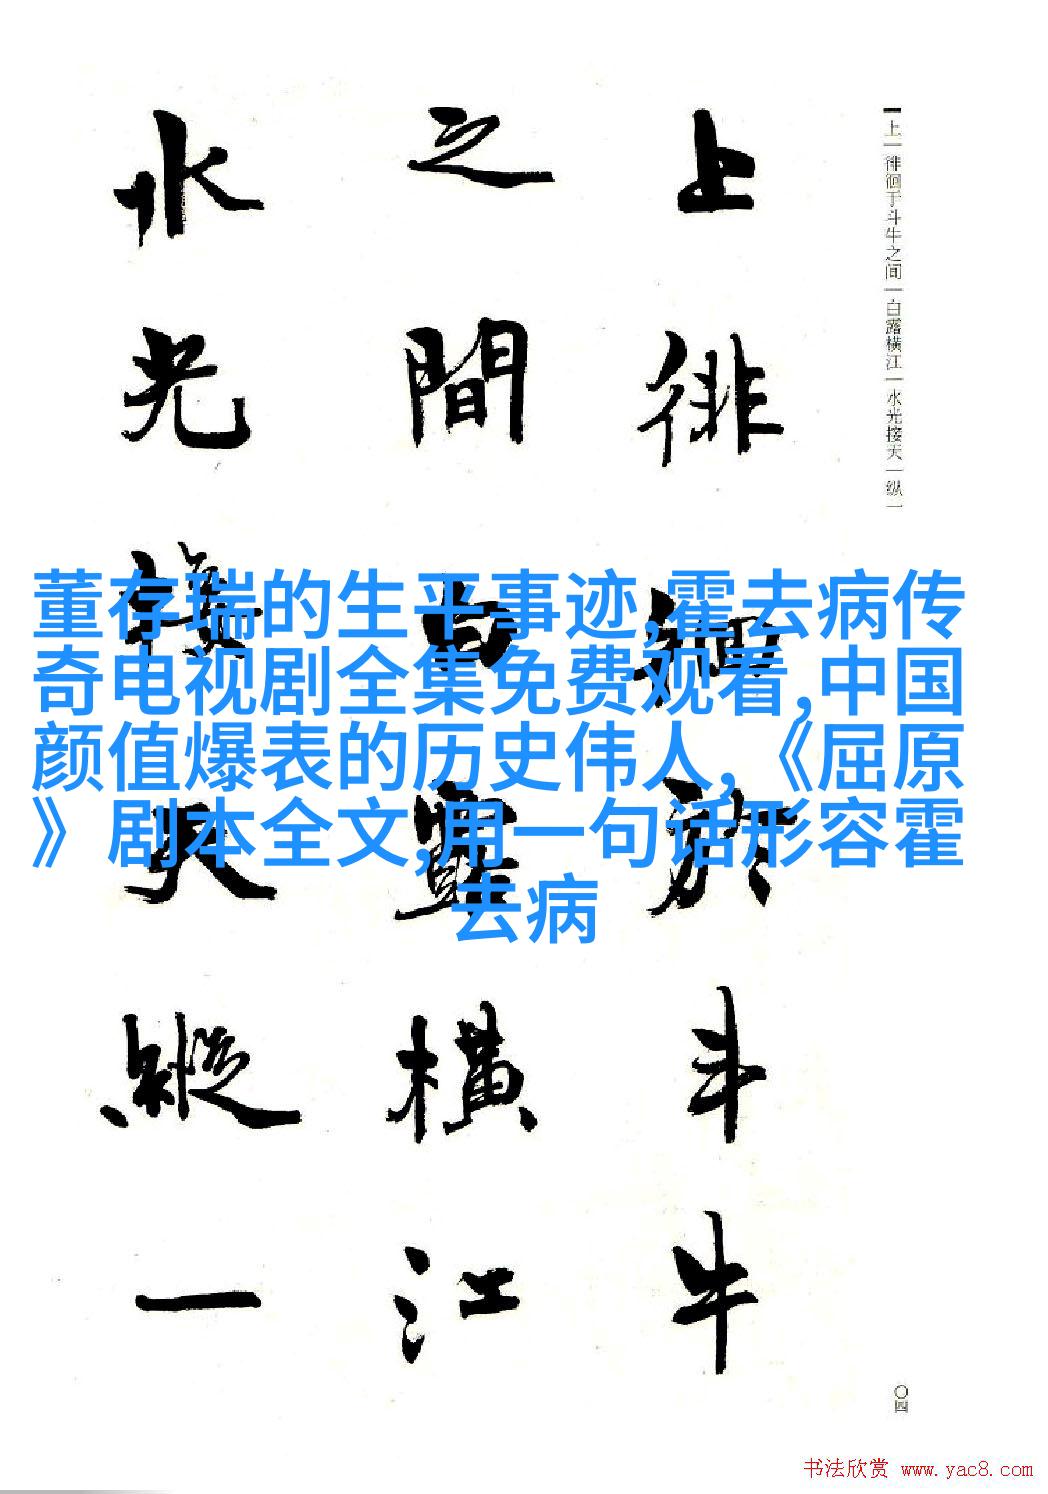 上一徘徊于斗牛之间一白露横江一水光接天一纵一
上徘徊於斗牛
之間白露橫江
水光接天縱一
董存瑞的生平事迹,霍去病传
奇电视剧全集免费观看,中国
颜值爆表的历史伟人,《屈原
》剧本全文,用一句话形容霍
去病
〇四
书法欣赏 www.yac8.com